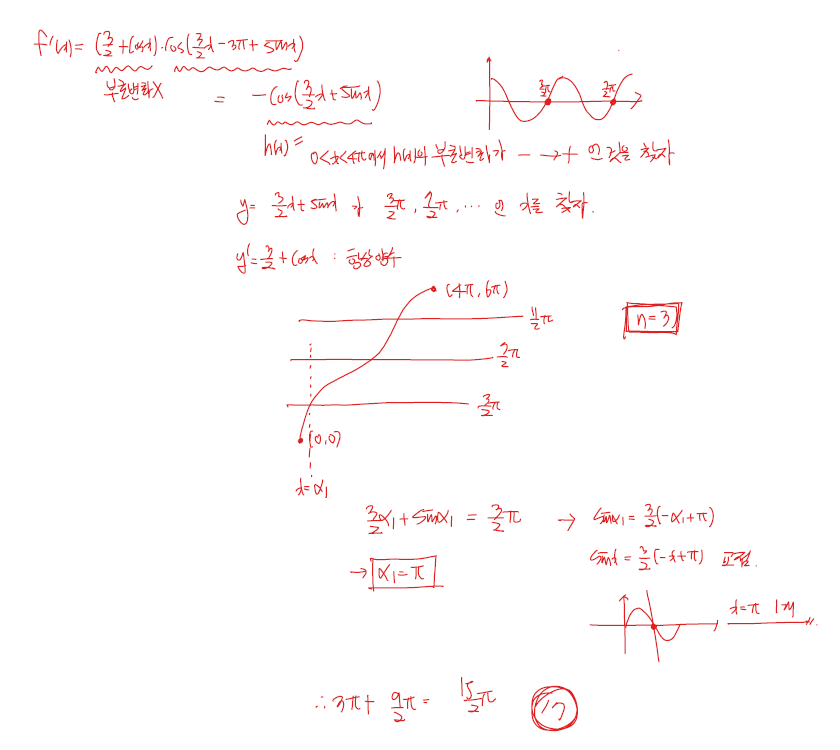 f'(x) = (3/2 + cosx)·cos(3/2x - 3π + sinx)
부호변화X = -cos(3/2x + sinx)
3/2π 7/2π
h(x) =
0<x<4π에서 h(x)의 부호변화가 - → + 인 것을 찾자
y = 3/2x + sinx 가 3/2π, 7/2π, ⋯ 인 x를 찾자.
y' = 3/2 + cosx : 항상 양수
(4π, 6π)
11/2π
n=3
7/2π
3/2π
(0,0)
x=α₁
3/2α₁ + sinα₁ = 3/2π → sinα₁ = 3/2(-α₁+π)
sinx = 3/2(-x+π) 교점.
→ α₁=π
x=π 1개
∴ 3π + 9/2π = 15/2π 17